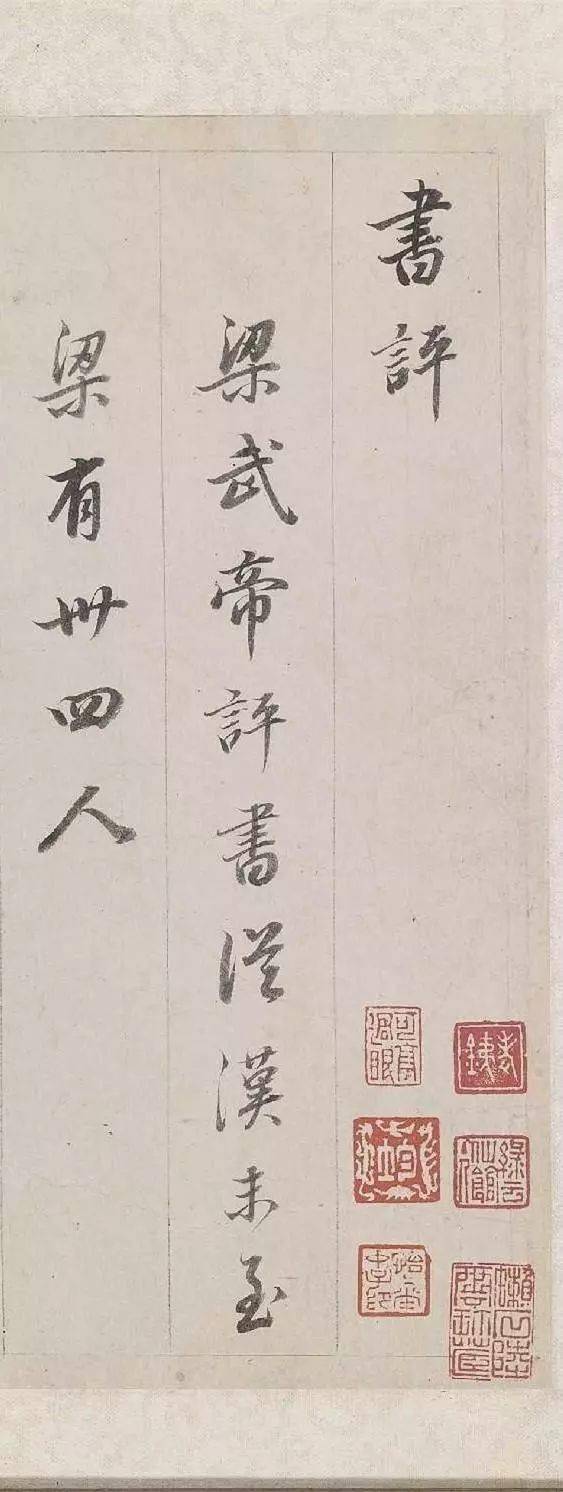 書評
梁武帝評書從漢末至
梁有卅四人